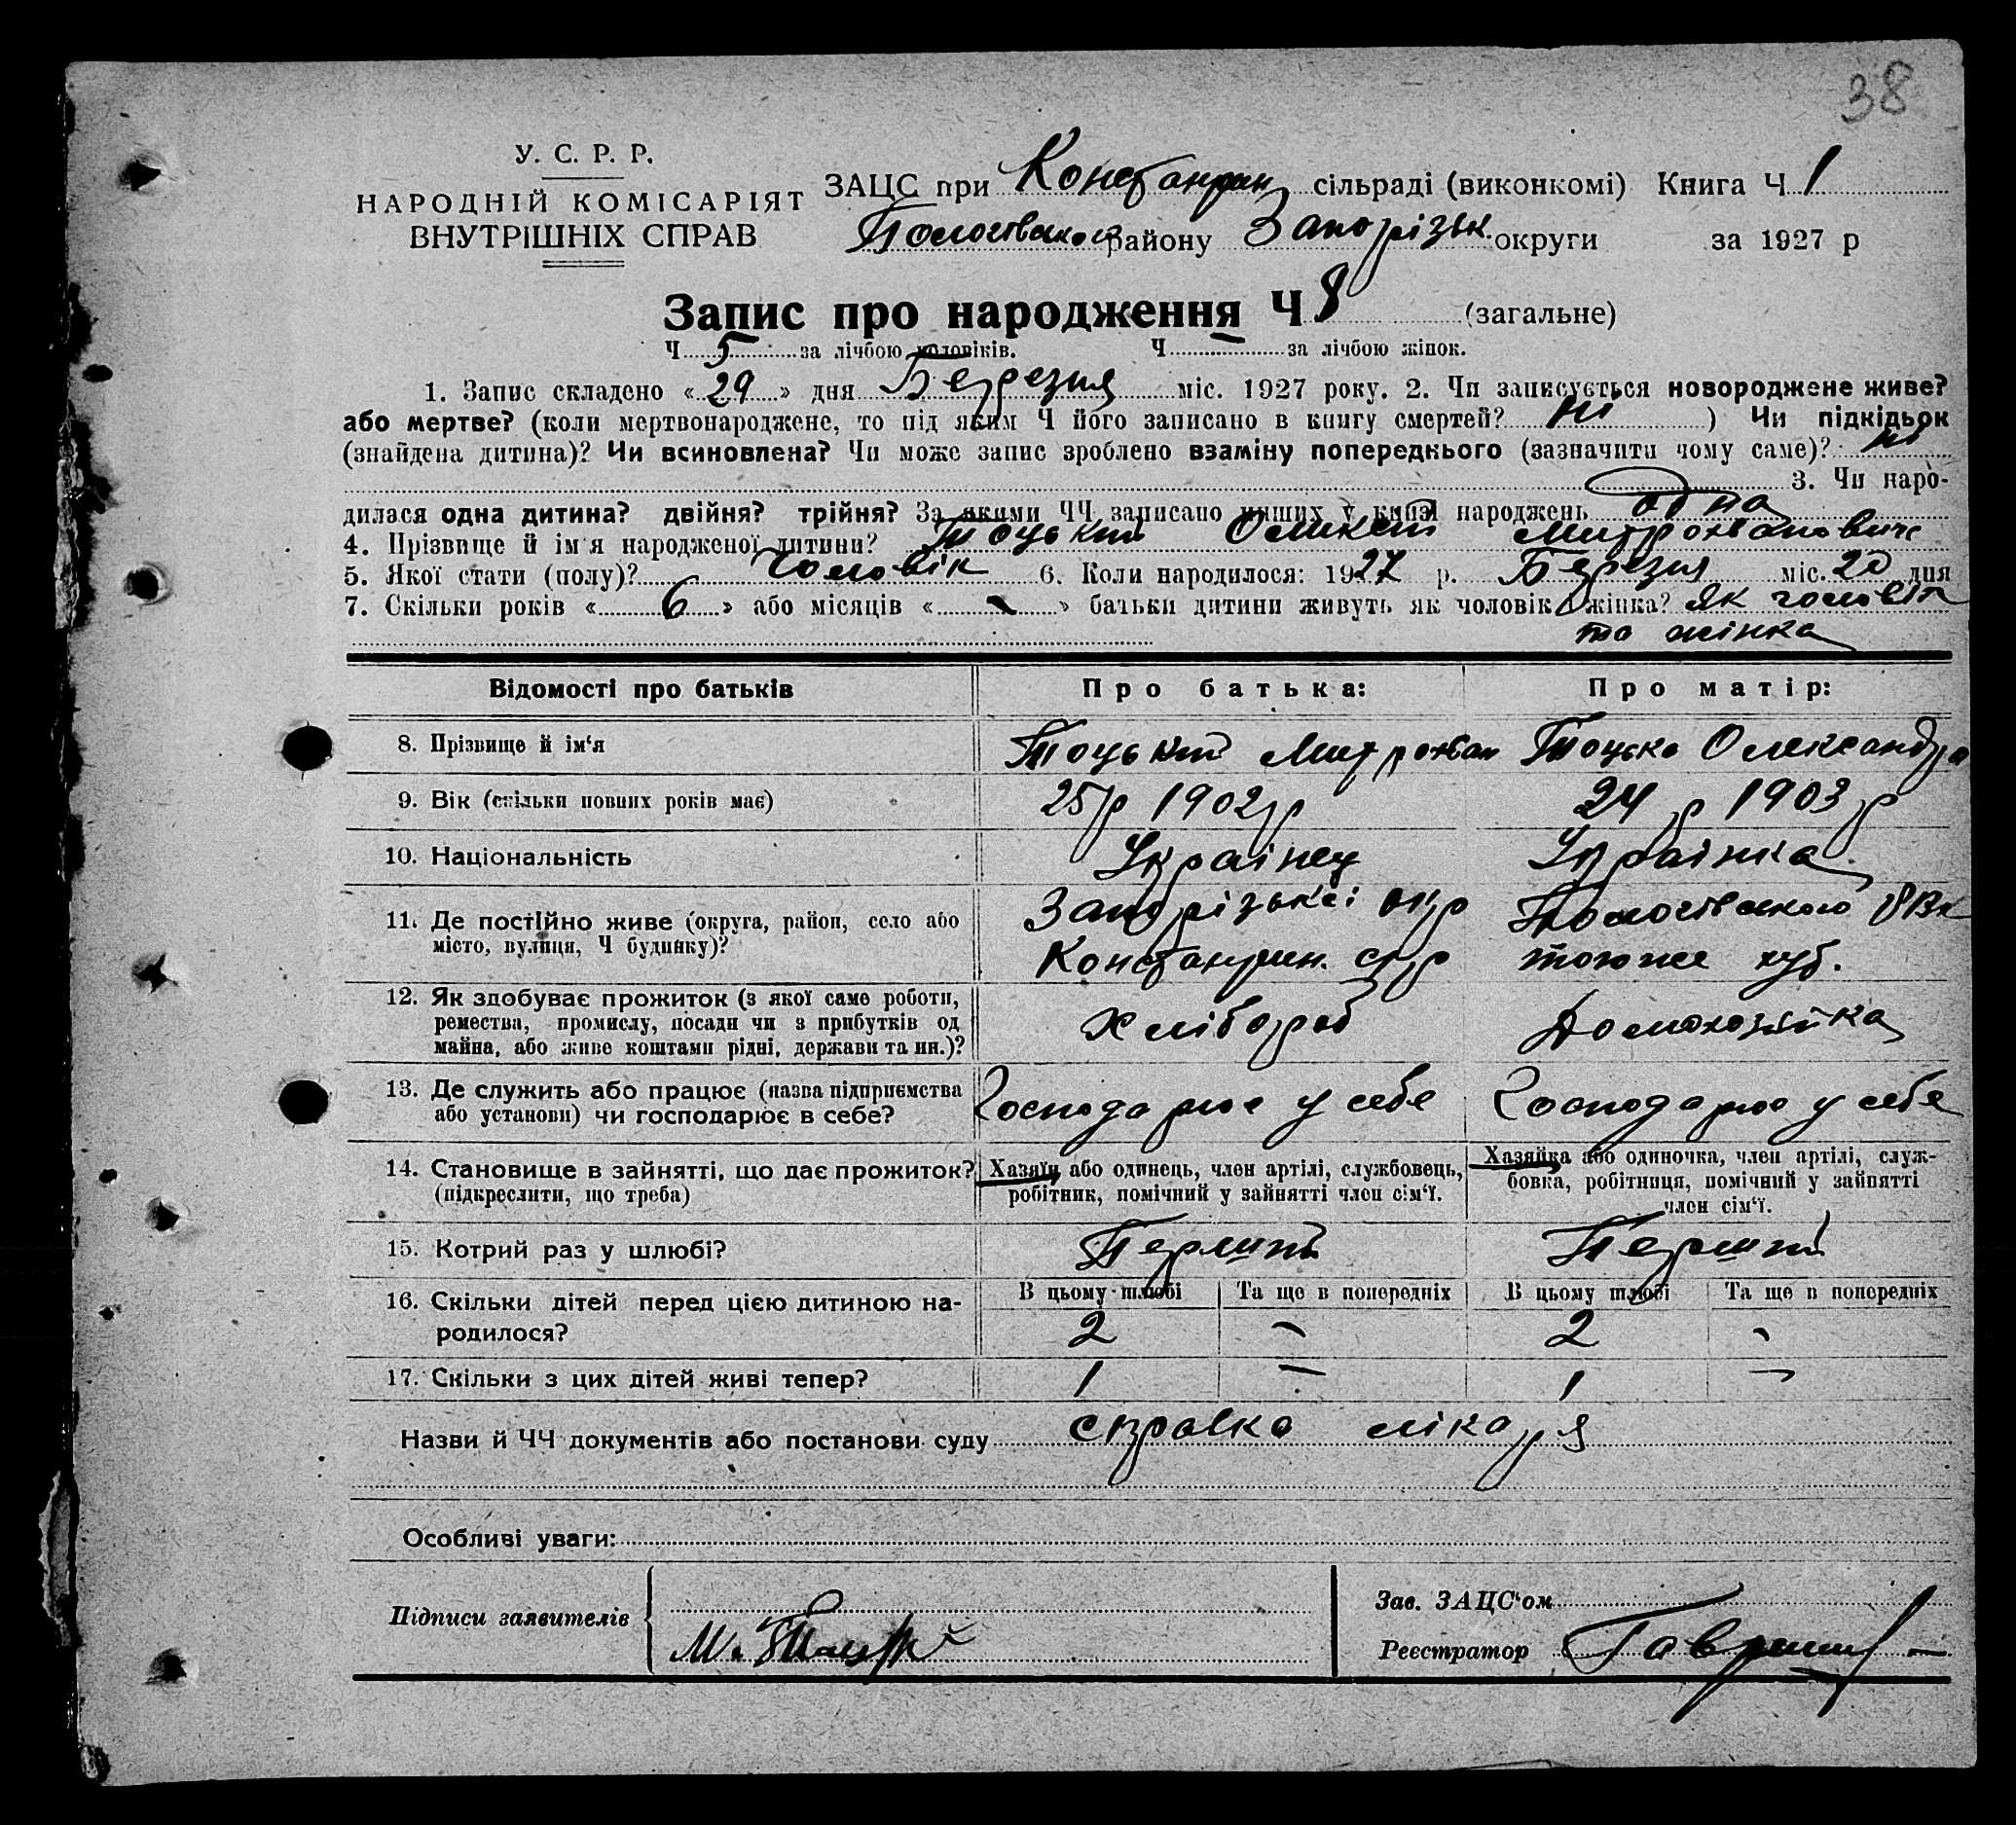 38
У. С. Р. Р.
НАРОДНІЙ КОМІСАРІЯТ
ВНУТРІШНІХ СПРАВ
ЗАЦС при Константин сільраді (виконкомі) Книга Ч 1
Пологівського району Запорізьк. округи за 1927 р
Запис про народження Ч 8 (загальне)
Ч 5 за лічбою чоловіків. Ч — за лічбою жінок.
1. Запис складено « 29 » дня Березня міс. 1927 року. 2. Чи записується новороджене живе?
або мертве? (коли мертвонароджене, то під яким Ч його записано в книгу смертей? ні ) Чи підкідьок
(знайдена дитина)? Чи всиновлена? Чи може запис зроблено взаміну попереднього (зазначити чому саме)? ні
3. Чи наро-
дилася одна дитина? двійня? трійня? За якими ЧЧ записано инших у книзі народжень одна
4. Прізвище й ім'я народженої дитини? Тоцький Митрофанович
5. Якої стати (полу)? Чоловік 6. Коли народилося: 1927 р. Березня міс. 20 дня
7. Скільки років « 6 » або місяців « - » батьки дитини живуть як чоловік і жінка? як чоловік
та жінка
Відомості про батьків Про батька: Про матір:
8. Прізвище й ім'я Тоцький Митрофан Тоцька Олександра
9. Вік (скільки повних років має) 25 р 1902 р 24 р 1903 р
10. Національність Украінец Украінка
11. Де постійно живе (округа, район, село або Запорізької окр Пологівського
місто, вулиця, Ч будинку)? Константин. с/р тогоже
12. Як здобуває прожиток (з якої саме роботи,
ремества, промислу, посади чи з прибутків од Хлібороб Домохозяйка
майна, або живе коштами рідні, держави та ин.)?
13. Де служить або працює (назва підприємства Господарює у себе Господарює у себе
або установи) чи господарює в себе?
14. Становище в зайнятті, що дає прожиток? Хазяїн або одинець, член артілі, службовець, Хазяйка або одиночка, член артілі, служ-
(підкреслити, що треба) робітник, помічний у зайнятті член сім'ї. бовка, робітниця, помічний у зайнятті
член сім'ї.
15. Котрий раз у шлюбі? Перший Перший
16. Скільки дітей перед цією дитиною на- В цьому шлюбі Та ще в попередніх В цьому шлюбі Та ще в попередніх
родилося? 2 - 2 -
17. Скільки з цих дітей живі тепер? 1 - 1 -
Назви й ЧЧ документів або постанови суду справка лікаря
Особливі уваги:
Підписи заявителів Зав. ЗАЦС'ом
Реєстратор